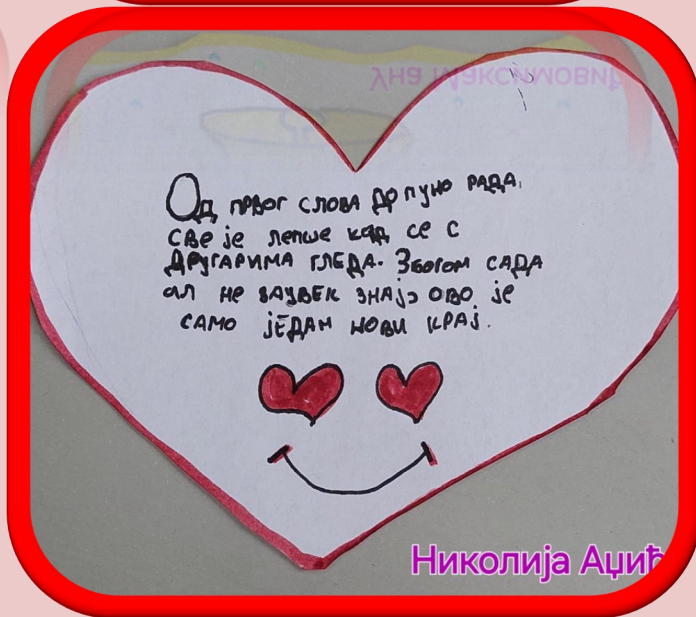 Уна Максимовић
Од првог слова до пуно рада,
све је лепше кад се с
другарима гледа. Збогом сада
ал не заувек знај овo је
само један нови крај.
Николија Аџић